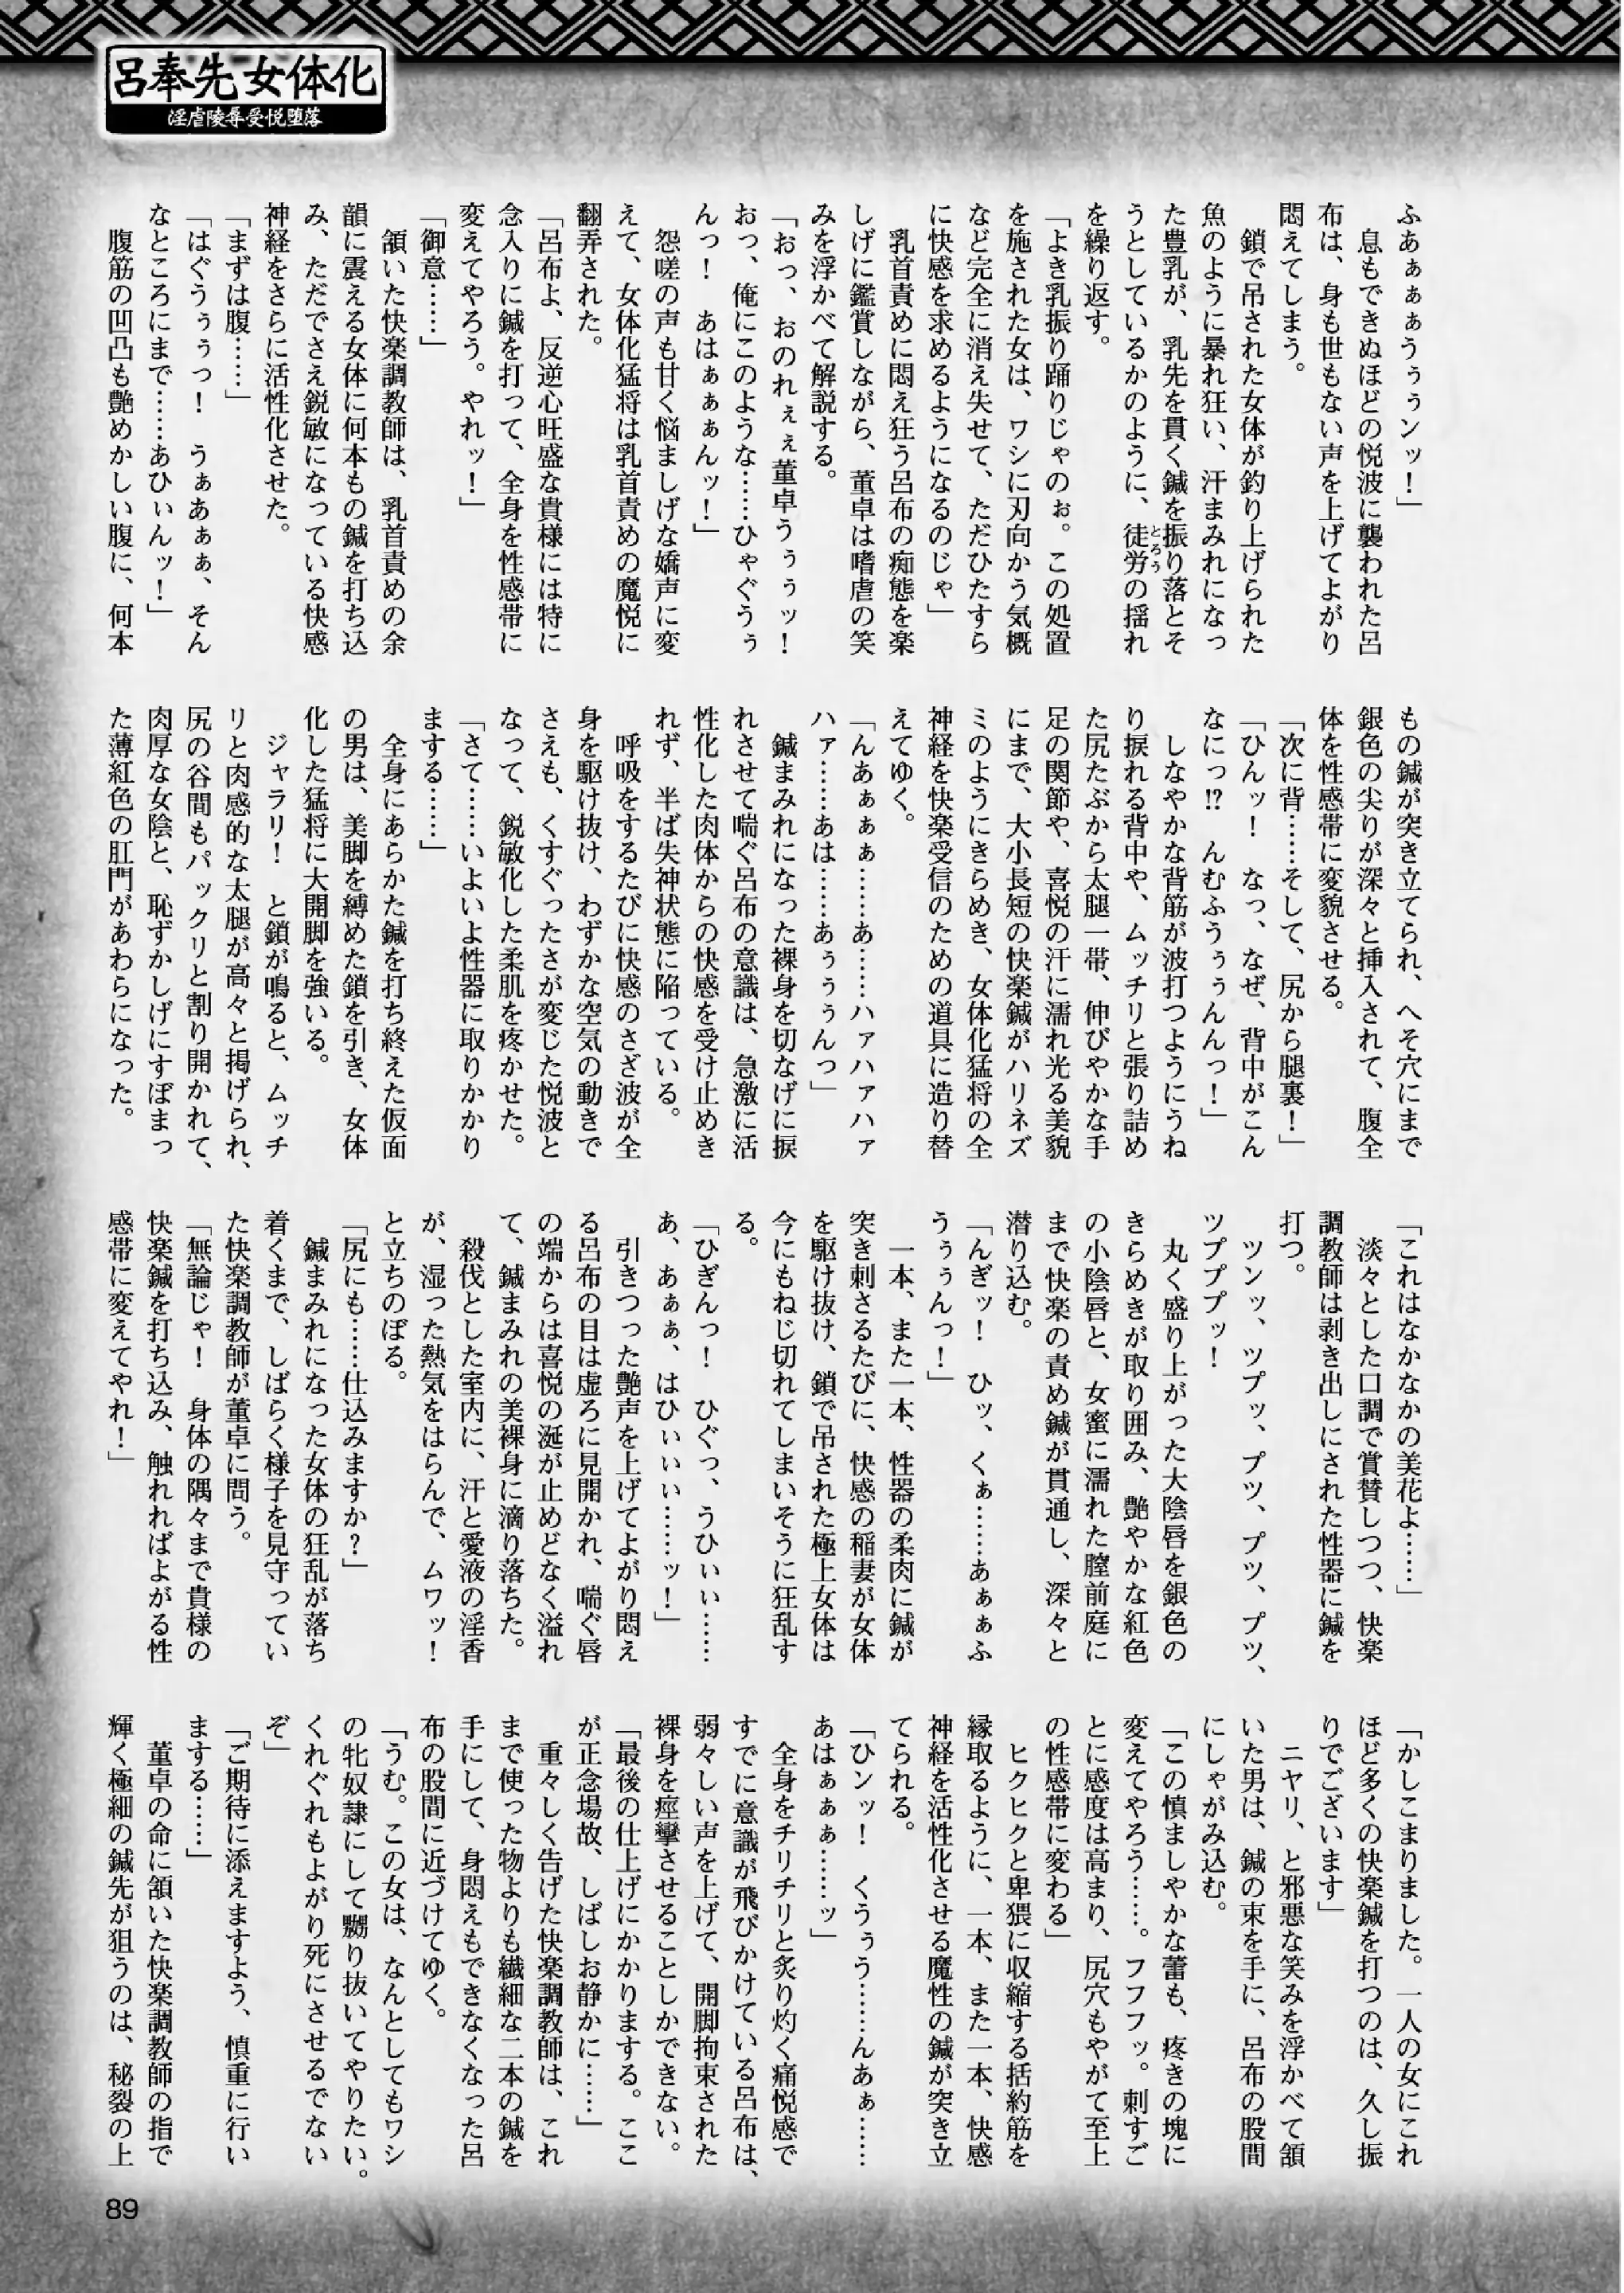 呂奉先女体化
淫虐陵辱受悦堕落
ふあぁぁぁうぅぅンッ！」
　息もできぬほどの悦波に襲われた呂
布は、身も世もない声を上げてよがり
悶えてしまう。
　鎖で吊された女体が釣り上げられた
魚のように暴れ狂い、汗まみれになっ
た豊乳が、乳先を貫く鍼を振り落とそ
うとしているかのように、徒労の揺れ
とろう
を繰り返す。
「よき乳振り踊りじゃのぉ。この処置
を施された女は、ワシに刃向かう気概
など完全に消え失せて、ただひたすら
に快感を求めるようになるのじゃ」
　乳首責めに悶え狂う呂布の痴態を楽
しげに鑑賞しながら、董卓は嗜虐の笑
みを浮かべて解説する。
「おっ、おのれぇぇ董卓うぅぅッ！
おっ、俺にこのような……ひゃぐうぅ
んっ！　あはぁぁぁんッ！」
　怨嗟の声も甘く悩ましげな嬌声に変
えて、女体化猛将は乳首責めの魔悦に
翻弄された。
「呂布よ、反逆心旺盛な貴様には特に
念入りに鍼を打って、全身を性感帯に
変えてやろう。やれッ！」
「御意……」
　頷いた快楽調教師は、乳首責めの余
韻に震える女体に何本もの鍼を打ち込
み、ただでさえ鋭敏になっている快感
神経をさらに活性化させた。
「まずは腹……」
「はぐうぅぅっ！　うぁあぁぁ、そん
なところにまで……あひぃんッ！」
　腹筋の凹凸も艶めかしい腹に、何本
もの鍼が突き立てられ、へそ穴にまで
銀色の尖りが深々と挿入されて、腹全
体を性感帯に変貌させる。
「次に背……そして、尻から腿裏！」
「ひんッ！　なっ、なぜ、背中がこん
なにっ!?　んむふうぅぅんんっ！」
　しなやかな背筋が波打つようにうね
り捩れる背中や、ムッチリと張り詰め
た尻たぶから太腿一帯、伸びやかな手
足の関節や、喜悦の汗に濡れ光る美貌
にまで、大小長短の快楽鍼がハリネズ
ミのようにきらめき、女体化猛将の全
神経を快楽受信のための道具に造り替
えてゆく。
「んあぁぁぁ……あ……ハァハァハァ
ハァ……あは……あぅぅぅんっ」
　鍼まみれになった裸身を切なげに捩
れさせて喘ぐ呂布の意識は、急激に活
性化した肉体からの快感を受け止めき
れず、半ば失神状態に陥っている。
　呼吸をするたびに快感のさざ波が全
身を駆け抜け、わずかな空気の動きで
さえも、くすぐったさが変じた悦波と
なって、鋭敏化した柔肌を疼かせた。
「さて……いよいよ性器に取りかかり
まする……」
　全身にあらかた鍼を打ち終えた仮面
の男は、美脚を縛めた鎖を引き、女体
化した猛将に大開脚を強いる。
　ジャラリ！　と鎖が鳴ると、ムッチ
リと肉感的な太腿が高々と掲げられ、
尻の谷間もパックリと割り開かれて、
肉厚な女陰と、恥ずかしげにすぼまっ
た薄紅色の肛門があわらになった。
「これはなかなかの美花よ……」
　淡々とした口調で賞賛しつつ、快楽
調教師は剥き出しにされた性器に鍼を
打つ。
　ツンッ、ツプッ、プツ、プツ、プツ、
ツプププッ！
　丸く盛り上がった大陰唇を銀色の
きらめきが取り囲み、艶やかな紅色
の小陰唇と、女蜜に濡れた膣前庭に
まで快楽の責め鍼が貫通し、深々と
潜り込む。
「んぎッ！　ひッ、くぁ……あぁぁふ
うぅぅんっ！」
　一本、また一本、性器の柔肉に鍼が
突き刺さるたびに、快感の稲妻が女体
を駆け抜け、鎖で吊された極上女体は
今にもねじ切れてしまいそうに狂乱す
る。
「ひぎんっ！　ひぐっ、うひぃぃ……
あ、あぁぁ、はひぃぃぃ……ッ！」
　引きつった艶声を上げてよがり悶え
る呂布の目は虚ろに見開かれ、喘ぐ唇
の端からは喜悦の涎が止めどなく溢れ
て、鍼まみれの美裸身に滴り落ちた。
　殺伐とした室内に、汗と愛液の淫香
が、湿った熱気をはらんで、ムワッ！
と立ちのぼる。
「尻にも……仕込みますか？」
　鍼まみれになった女体の狂乱が落ち
着くまで、しばらく様子を見守ってい
た快楽調教師が董卓に問う。
「無論じゃ！　身体の隅々まで貴様の
快楽鍼を打ち込み、触れればよがる性
感帯に変えてやれ！」
「かしこまりました。一人の女にこれ
ほど多くの快楽鍼を打つのは、久し振
りでございます」
　ニヤリ、と邪悪な笑みを浮かべて頷
いた男は、鍼の束を手に、呂布の股間
にしゃがみ込む。
「この慎ましやかな蕾も、疼きの塊に
変えてやろう……。フフフッ。刺すご
とに感度は高まり、尻穴もやがて至上
の性感帯に変わる」
　ヒクヒクと卑猥に収縮する括約筋を
縁取るように、一本、また一本、快感
神経を活性化させる魔性の鍼が突き立
てられる。
「ひンッ！　くうぅう……んあぁ……
あはぁぁぁ……ッ」
　全身をチリチリと炙り灼く痛悦感で
すでに意識が飛びかけている呂布は、
弱々しい声を上げて、開脚拘束された
裸身を痙攣させることしかできない。
「最後の仕上げにかかりまする。ここ
が正念場故、しばしお静かに……」
　重々しく告げた快楽調教師は、これ
まで使った物よりも繊細な二本の鍼を
手にして、身悶えもできなくなった呂
布の股間に近づけてゆく。
「うむ。この女は、なんとしてもワシ
の牝奴隷にして嬲り抜いてやりたい。
くれぐれもよがり死にさせるでない
ぞ」
「ご期待に添えますよう、慎重に行い
まする……」
　董卓の命に頷いた快楽調教師の指で
輝く極細の鍼先が狙うのは、秘裂の上
89